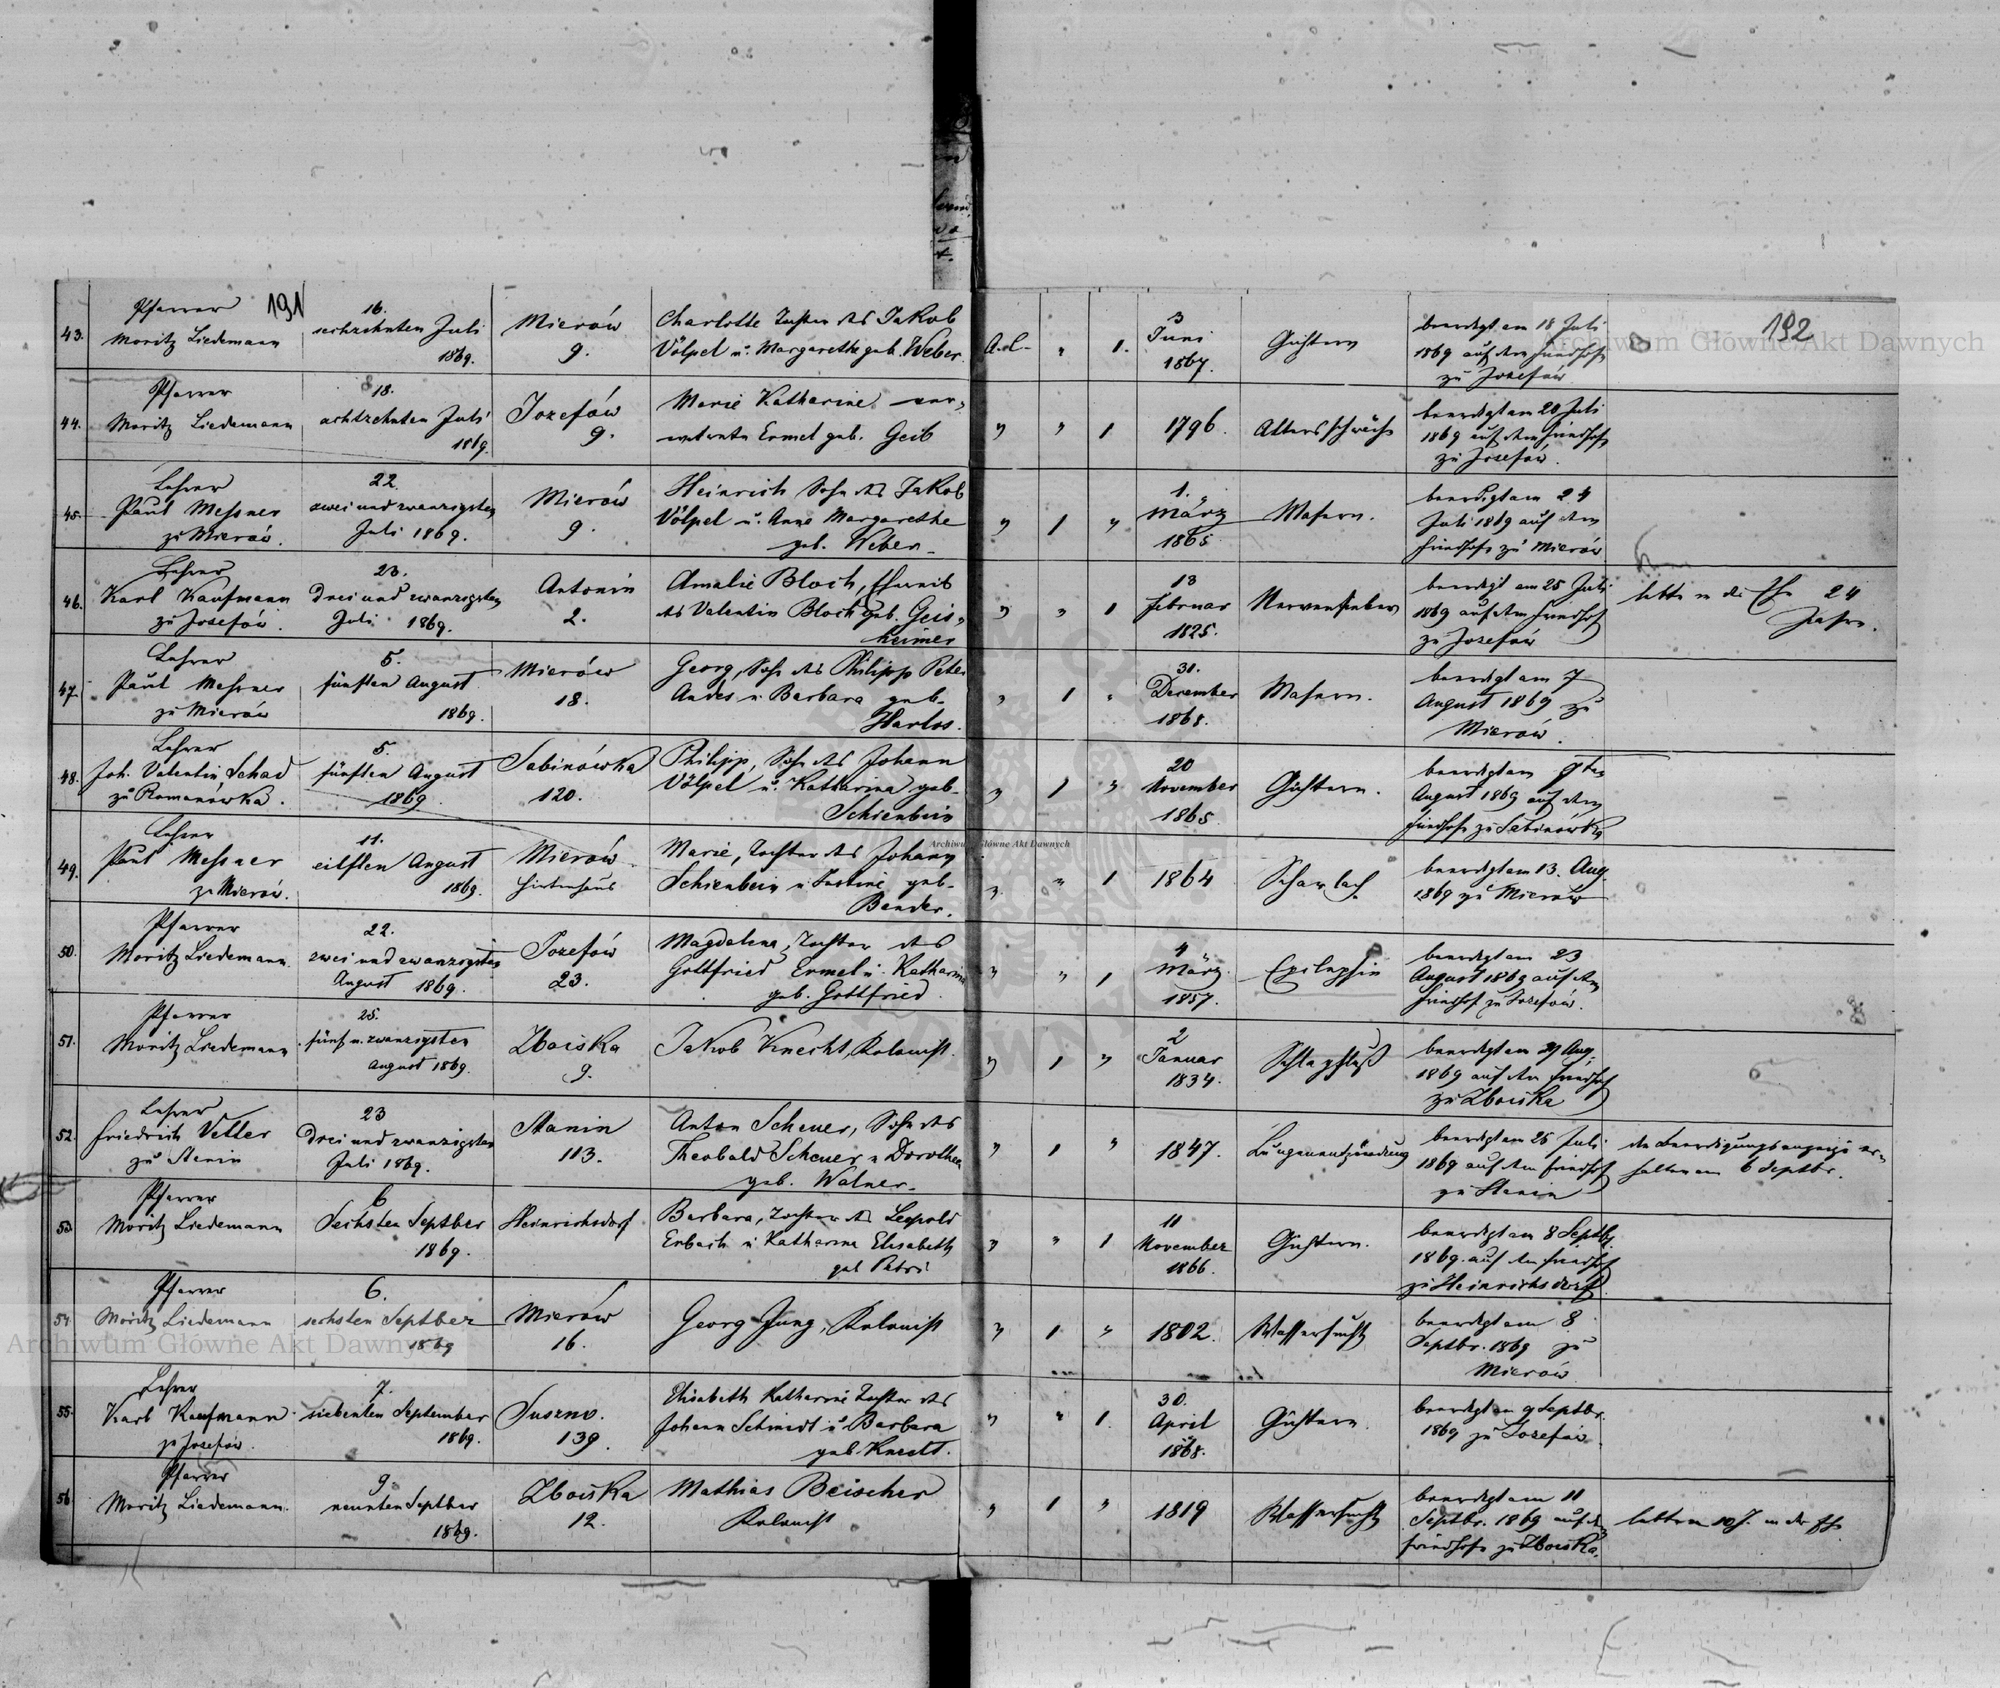 191
192
43.
Pfarrer
Moritz Liedemann
16.
sechzehnten Juli
1869.
Mierów
9.
Charlotte Tochter des Jakob
Völpel u. Margarethe geb. Weber.
A. C.
"
1.
3
Juni
1867.
Gichtern
beerdigt am 18 Juli
1869 auf dem Friedhofe
zu Josefów
44.
Pfarrer
Moritz Liedemann
18.
achtzehnten Juli
1869
Jozefów
9.
Marie Katharine ver-
witwete Ermel geb. Geib
"
"
1
1796.
Altersschwäche
beerdigt am 20 Juli
1869 auf dem Friedhofe
zu Josefów.
45.
Lehrer
Paul Messner
zu Mierów.
22.
zwei und zwanzigsten
Juli 1869.
Mierów
9.
Heinrich Sohn des Jakob
Völpel u. Anna Margarethe
geb. Weber
"
1
"
1.
März
1865
Masern.
beerdigt am 24
Juli 1869 auf dem
Friedhofe zu Mierów
46.
Lehrer
Karl Kaufmann
zu Josefów.
23.
Drei und zwanzigsten
Juli 1869.
Antonin
2.
Amalie Bloch, Eheweib
des Valentin Bloch geb. Geis-
heimer
"
"
1
13
Februar
1825.
Nervenfieber
beerdigt am 25 Juli
1869 auf dem Friedhof
zu Josefów
lebte in der Ehe 24
Jahre.
47.
Lehrer
Paul Messner
zu Mierów
5.
fünften August
1869.
Mierów
18.
Georg, Sohn des Philipp Peter
Andes u Barbara geb.
Harlos.
"
1
"
31.
December
1868.
Masern.
beerdigt am 7
August 1869 zu
Mierów.
48.
Lehrer
Joh. Valentin Schad
zu Romanówka.
5.
fünften August
1869
Sabinówka
120.
Philipp, Sohn des Johann
Völpel u. Katharina geb.
Schienbein
"
1
"
20
November
1865
Gichtern.
beerdigt am 7ten
August 1869 auf dem
Friedhofe zu Sabinówka
49.
Lehrer
Paul Messner
zu Mierów.
11.
eilften August
1869.
Mierów
Hirtenhaus
Marie, Tochter des Johann
Schienbein u Justine geb.
Bender.
"
"
1
1864
Scharlach
beerdigt am 13. Aug.
1869 zu Mierów
50.
Pfarrer
Moritz Liedemann.
22.
zwei und zwanzigsten
August 1869.
Jozefów
23.
Magdalena, Tochter des
Gottfried Ermel u. Katharina
geb. Gottfried.
"
"
1
4
März
1857.
Epilepsie
beerdigt am 23
August 1869 auf dem
Friedhof zu Josefów.
51.
Pfarrer
Moritz Liedemann
25.
fünf u. zwanzigsten
August 1869.
Zboiska
9.
Jakob Knecht, Kolonist.
"
1
"
2
Januar
1834.
Schlagfluß
beerdigt am 27 Aug.
1869 auf dem Friedhof
zu Zboiska
52.
Lehrer
Friedrich Vetter
zu Stanin
23
Drei und zwanzigsten
Juli 1869.
Stanin
113.
Anton Scheuer, Sohn des
Theobald Scheuer u Dorothea
geb. Walner.
"
1
"
1847.
Lungenentzündung
beerdigt am 25 Juli
1869 auf dem Friedhof
zu Stanin
die Beerdigungsanzeige er-
halten am 6 Septbr.
53.
Pfarrer
Moritz Liedemann
6
Sechsten Septber
1869.
Heinrichsdorf
Barbara, Tochter des Leopold
Erbach u Katharina Elisabeth
geb Petri
"
"
1
11
November
1866.
Gichtern.
beerdigt am 8 Septb.
1869. auf dem Friedhof
zu Heinrichsdorf.
54
Pfarrer
Moritz Liedemann
6.
sechsten Septber
1869
Mierów
16.
Georg Jung, Kolonist
"
1
"
1802.
Wassersucht
beerdigt am 8
Septbr. 1869 zu
Mierów
55.
Lehrer
Karl Kaufmann
zu Josefów.
7.
siebenten September
1869.
Suszno.
139.
Elisabeth Katharine Tochter des
Johann Schmidt u. Barbara
geb. Knecht.
"
"
1.
30.
April
1868.
Gichtern.
beerdigt am 9 Septbr.
1869 zu Josefów
56
Pfarrer
Moritz Liedemann.
9
neunten Septber
1869.
Zboiska
12.
Mathias Beischer
Kolonist
"
1
"
1819
Wassersucht
beerdigt am 11
Septbr. 1869 auf dem
Friedhofe zu Zboiska.
lebte 10 J. in der Ehe
Archiwum Główne Akt Dawnych
Archiwum Główne Akt Dawnych
Archiwum Główne Akt Dawnych